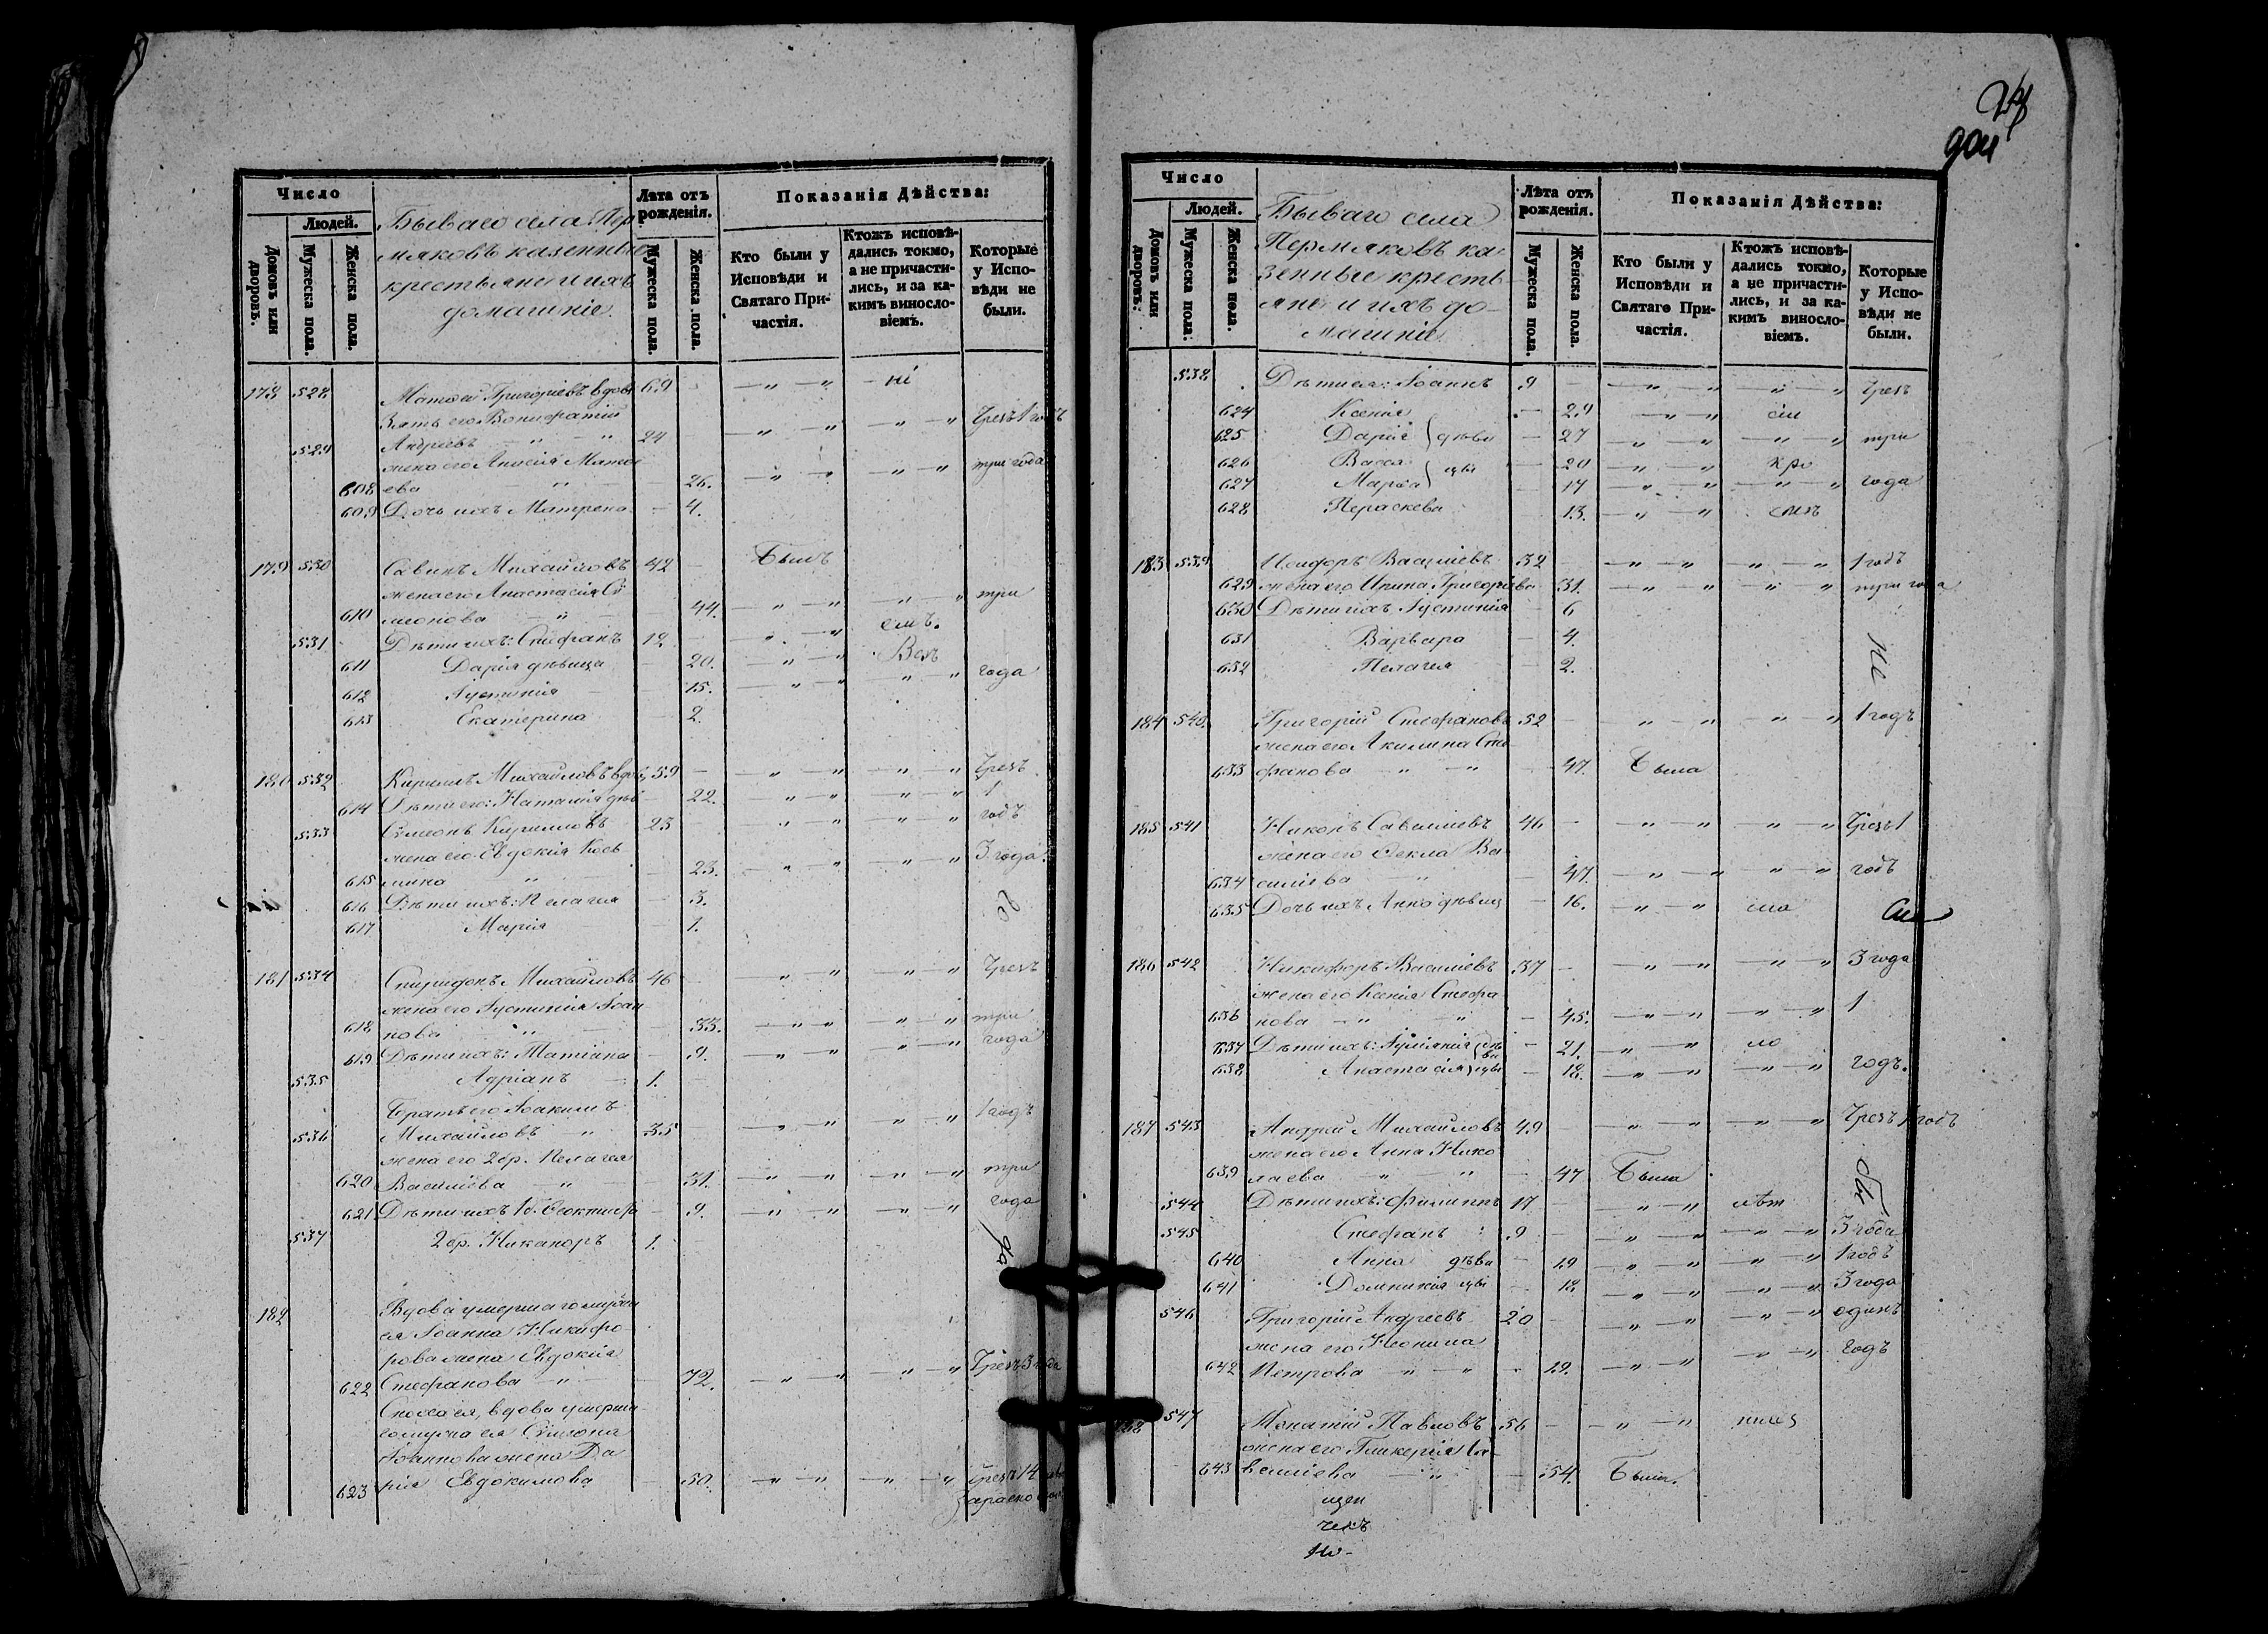 Число
Людей.
Домовъ или дворовъ.
Мужеска пола.
Женска пола.
Бываго села Пер
мяковъ казенные
крестьяне и ихъ
домашніе.
Лѣта отъ рожденія.
Мужеска пола.
Женска пола.
Показанія Дѣйства:
Кто были у Исповѣди и Святаго Причастія.
Ктожъ исповѣдались токмо, а не причастились, и за какимъ винословіемъ.
Которые у Исповѣди не были.
178 528 Матѳей Григоріевъ вдовъ 69
Зять его Вонифатій
529 Андреевъ 24 Чрезъ 1 годъ
жена его Анисія Матѳе
608 ева 26. три года
609 Дочь ихъ Матрена 4.
179 530 Савинъ Михайловъ 42 Былъ
жена его Анастасія Си
610 меонова 44. три
531 Дѣти ихъ: Стефанъ 18
611 Дарія дѣвица 20.
612 Іустинія 15. года
613 Екатерина 2.
180 532 Кириллъ Михайловъ вдовъ 59 Чрезъ
614 Дѣти его: Наталія дѣв 22. 1
533 Симеонъ Кирилловъ 23 годъ
жена его Евдокія Кось
615 мина 23. 3 года
616 Дѣти ихъ: Пелагея 3.
617 Марія 1.
181 534 Спиридонъ Михайловъ 46 Чрезъ
жена его Іустинія Іоан
618 нова 33. три
619 Дѣти ихъ: Татіана 9. года
535 Адріанъ 1.
Братъ его Іоакимъ
536 Михайловъ 35 1 годъ
жена его 2 бр. Пелагея
620 Василіева 31. три
621 Дѣти ихъ 1 б. 9. года
537 2 бр. Никаноръ 1.
182 Вдова умершаго мужа
ея Іоанна Никифо
рова жена Евдокія
622 Стефанова 72. Чрезъ 3 года
Сноха ея, вдова умерша
го мужа ея Симеона
Іоаннова жена Да
623 рія Евдокимова 50. Чрезъ 14
Число
Людей.
Домовъ или дворовъ:
Мужеска пола:
Женска пола.
Бываго села
Пермяковъ ка
зенные кресть
яне и ихъ до-
машніе
Лѣта отъ рожденія.
Мужеска пола.
Женска пола.
Показанія Дѣйства:
Кто были у Исповѣди и Святаго Причастія.
Ктожъ исповѣдались токмо, а не причастились, и за какимъ винословіемъ.
Которые у Исповѣди не были.
538 Дѣти ея: Іоаннъ 9 Чрезъ
624 Ксенія 29
625 Дарія дѣви 27 три
626 Васса цы 20
627 Марѳа 17 года
628 Параскева 13.
183 539 Василіевъ 32 1 годъ
629 жена его Ирина Григоріева 31. три года
630 Дѣти ихъ Іустинія 6
631 Варвара 4.
632 Пелагея 2.
184 540. Григорій Стефановъ 52 1 годъ
жена его Акилина Сте
633 фанова 47. Была
185 541 Никонъ Савеліевъ 46 Чрезъ 1
жена его Ѳекла Ва
634 силіева 47. годъ
635 Дочь ихъ Анна дѣвиц 16.
186 542 Никифоръ Василіевъ 37 3 года
жена его Ксенія Стефа
636 нова 45. 1
637 Дѣти ихъ: Іуліанія дѣ ви 21.
638 Анастасія цы 18. годъ.
187 543 Андрей Михайловъ 49 Чрезъ 1 годъ
жена его Анна Нико
639 лаева 47 Была
544 Дѣти ихъ: Филиппъ 17
545 Стефанъ 9 3 года
640 Анна дѣви 19 1 годъ
641 Домникія цы 18 3 года
546 Григорій Андреевъ 20 одинъ
жена его Неонила
642 Петрова 19. годъ
188 547 Игнатій Павловъ 56
жена его Гликерія Са
643 веліева 54. Была.